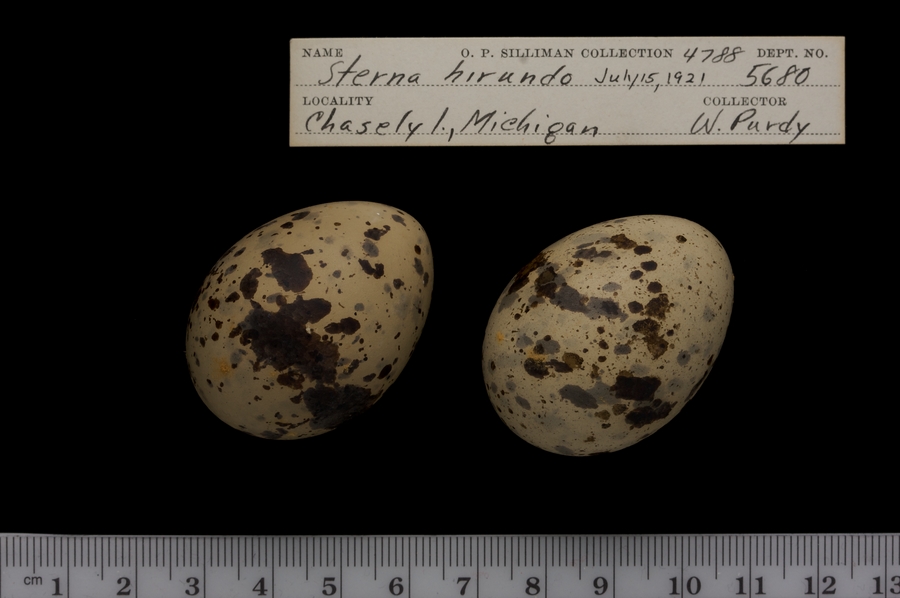 NAME O. P. SILLIMAN COLLECTION 4788 DEPT. NO.
Sterna hirundo July 15, 1921 5680
LOCALITY COLLECTOR
Chasely I., Michigan W. Purdy
cm 1 2 3 4 5 6 7 8 9 10 11 12 13